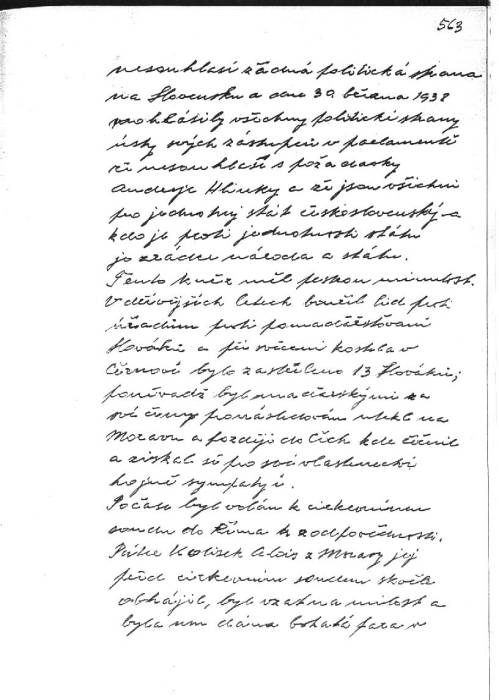 563
nesouhlasí žádná politická strana
na Slovensku a dne 30 března 1938
prohlásily všechny politické strany
ústy svých zástupců v parlamentě
že nesouhlasí s požadavky
Andreje Hlinky a že jsou všichni
pro jednotný stát československý a
kdo je proti jednotnosti státu
je zrádce národa a státu.
Tento kněz měl peknou minulost.
V dřívějších letech bouřil lid proti
úřadům proti pomaďaršťování
Slováků a při svěcení kostela v
Černové bylo zastřeleno 13 Slováků;
poněvadž byl maďarskými za
své činy pronásledován utekl na
Moravu a pozdeji do Čech kde účinil
a získal si pro své vlastenectví
hojně sympatyí.
Počase byl volán k církevnímu
soudu do Říma k zodpověděnosti.
Páter Kolísek Alois z Moravy jej
před církevním soudem skvěle
obhájil, byl vzat na milost a
byla mu dána bohatá fara v